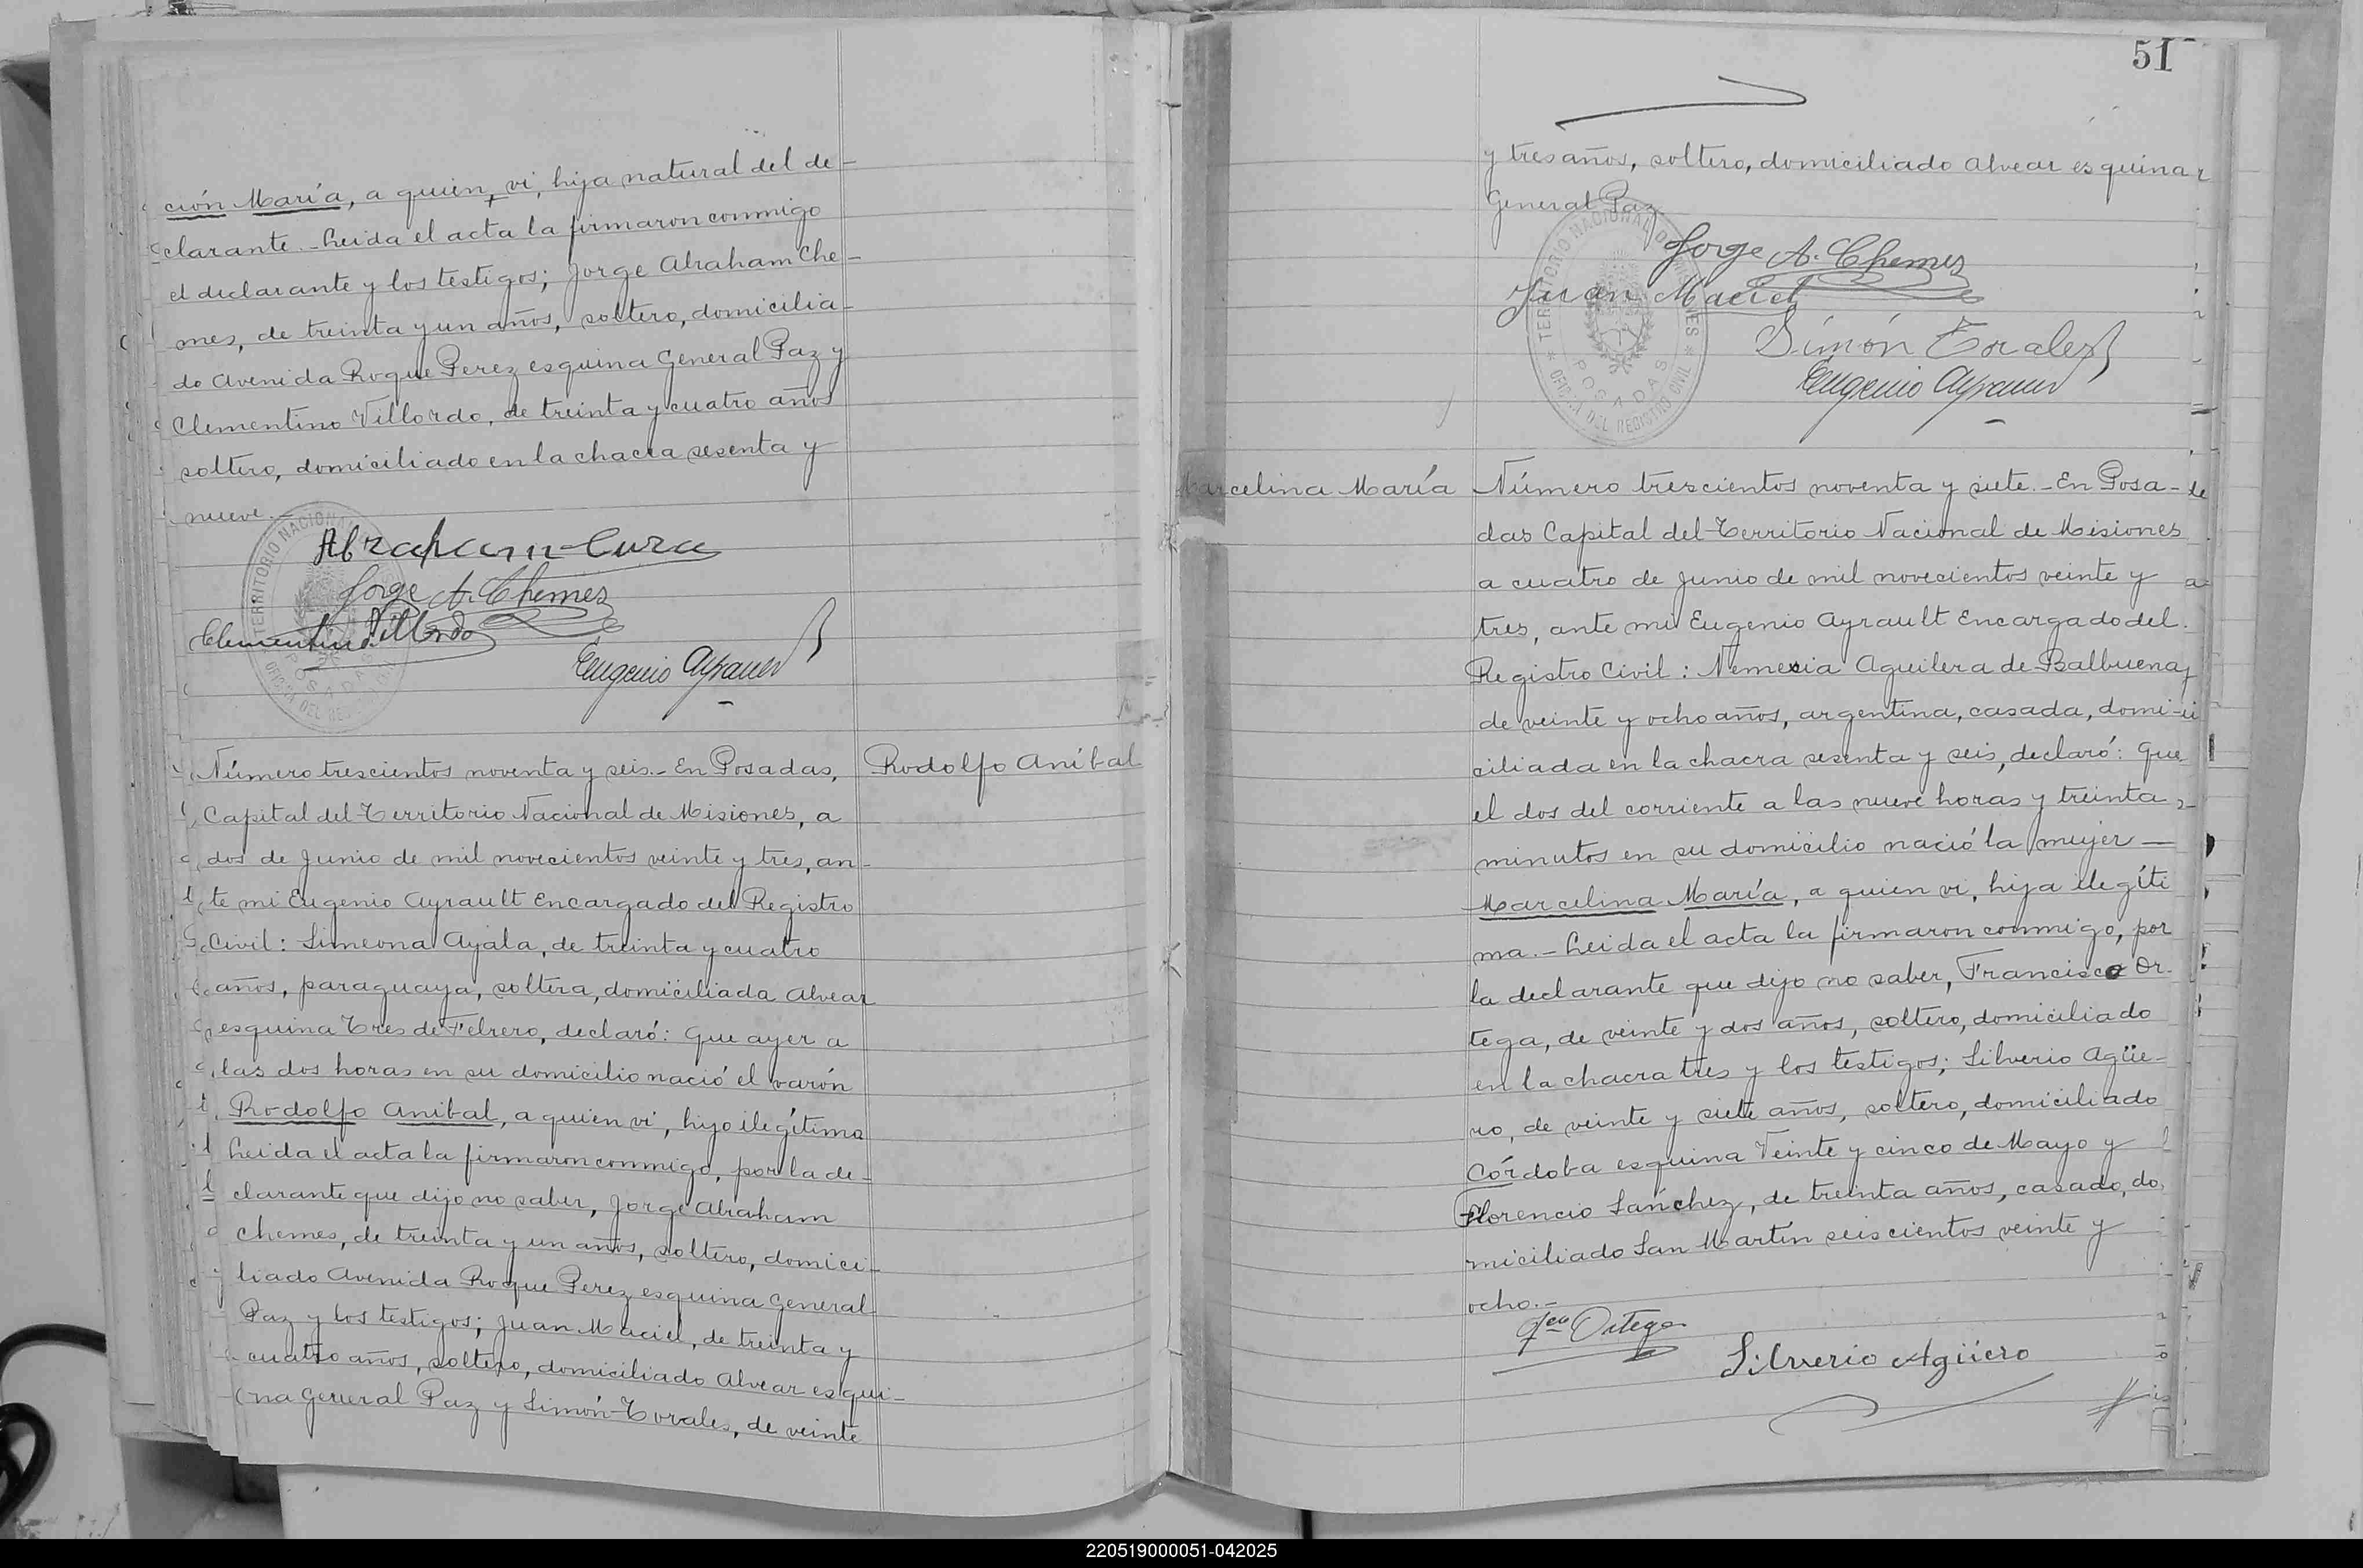 ción María, a quien, vi, hija natural del de-
clarante.- Leida el acta la firmaron conmigo
el declarante y los testigos; Jorge Abraham Che-
mes, de treinta y un años, soltero, domicilia-
do Avenida Roque Perez esquina General Paz y
Clementino Villordo, de treinta y cuatro años
soltero, domiciliado en la chacra sesenta y
nueve.-
Abraham Cura
Jorge A. Chemes
Clementino Villordo
Eugenio Ayrault
TERRITORIO NACIONAL
POSADAS
OFICINA DEL REG
Número trescientos noventa y seis.- En Posadas,
Rodolfo Aníbal
Capital del Territorio Nacional de Misiones, a
dos de Junio de mil novecientos veinte y tres, an-
te mi Eugenio Ayrault Encargado del Registro
Civil: Simeona Ayala, de treinta y cuatro
años, paraguaya, soltera, domiciliada Alvear
esquina Tres de Febrero, declaró: Que ayer a
las dos horas en su domicilio nació el varón
Rodolfo Anibal, a quien vi, hijo ilegítimo
Leida el acta la firmaron conmigo, por la de-
clarante que dijo no saber, Jorge Abraham
Chemes, de treinta y un años, soltero, domici-
liado Avenida Roque Perez esquina General
Paz y los testigos; Juan Maciel, de treinta y
cuatro años, soltero, domiciliado Alvear esqui-
na General Paz y Simón Torales, de veinte
51
y tres años, soltero, domiciliado Alvear esquina
General Paz
Jorge A. Chemes
Juan Maciel
Simón Torales
Eugenio Ayrault
TERRITORIO NACIONAL DE MISIONES
POSADAS
OFICINA DEL REGISTRO CIVIL
Marcelina María
Número trescientos noventa y siete.- En Posa-
das Capital del Territorio Nacional de Misiones
a cuatro de Junio de mil novecientos veinte y
tres, ante mi Eugenio Ayrault Encargado del
Registro Civil: Nemesia Aguilera de Balbuena,
de veinte y ocho años, argentina, casada, domi-
ciliada en la chacra sesenta y seis, declaró: Que
el dos del corriente a las nueve horas y treinta
minutos en su domicilio nació la mujer —
Marcelina María, a quien vi, hija ilegíti
ma.- Leida el acta la firmaron conmigo, por
la declarante que dijo no saber, Francisco Or-
tega, de veinte y dos años, soltero, domiciliado
en la chacra tres y los testigos; Silverio Agüe-
ro, de veinte y siete años, soltero, domiciliado
Córdoba esquina Veinte y cinco de Mayo y
Florencio Sánchez, de treinta años, casado, do
miciliado San Martín seiscientos veinte y
ocho.-
Fco Ortega
Silverio Agüero
220519000051-042025